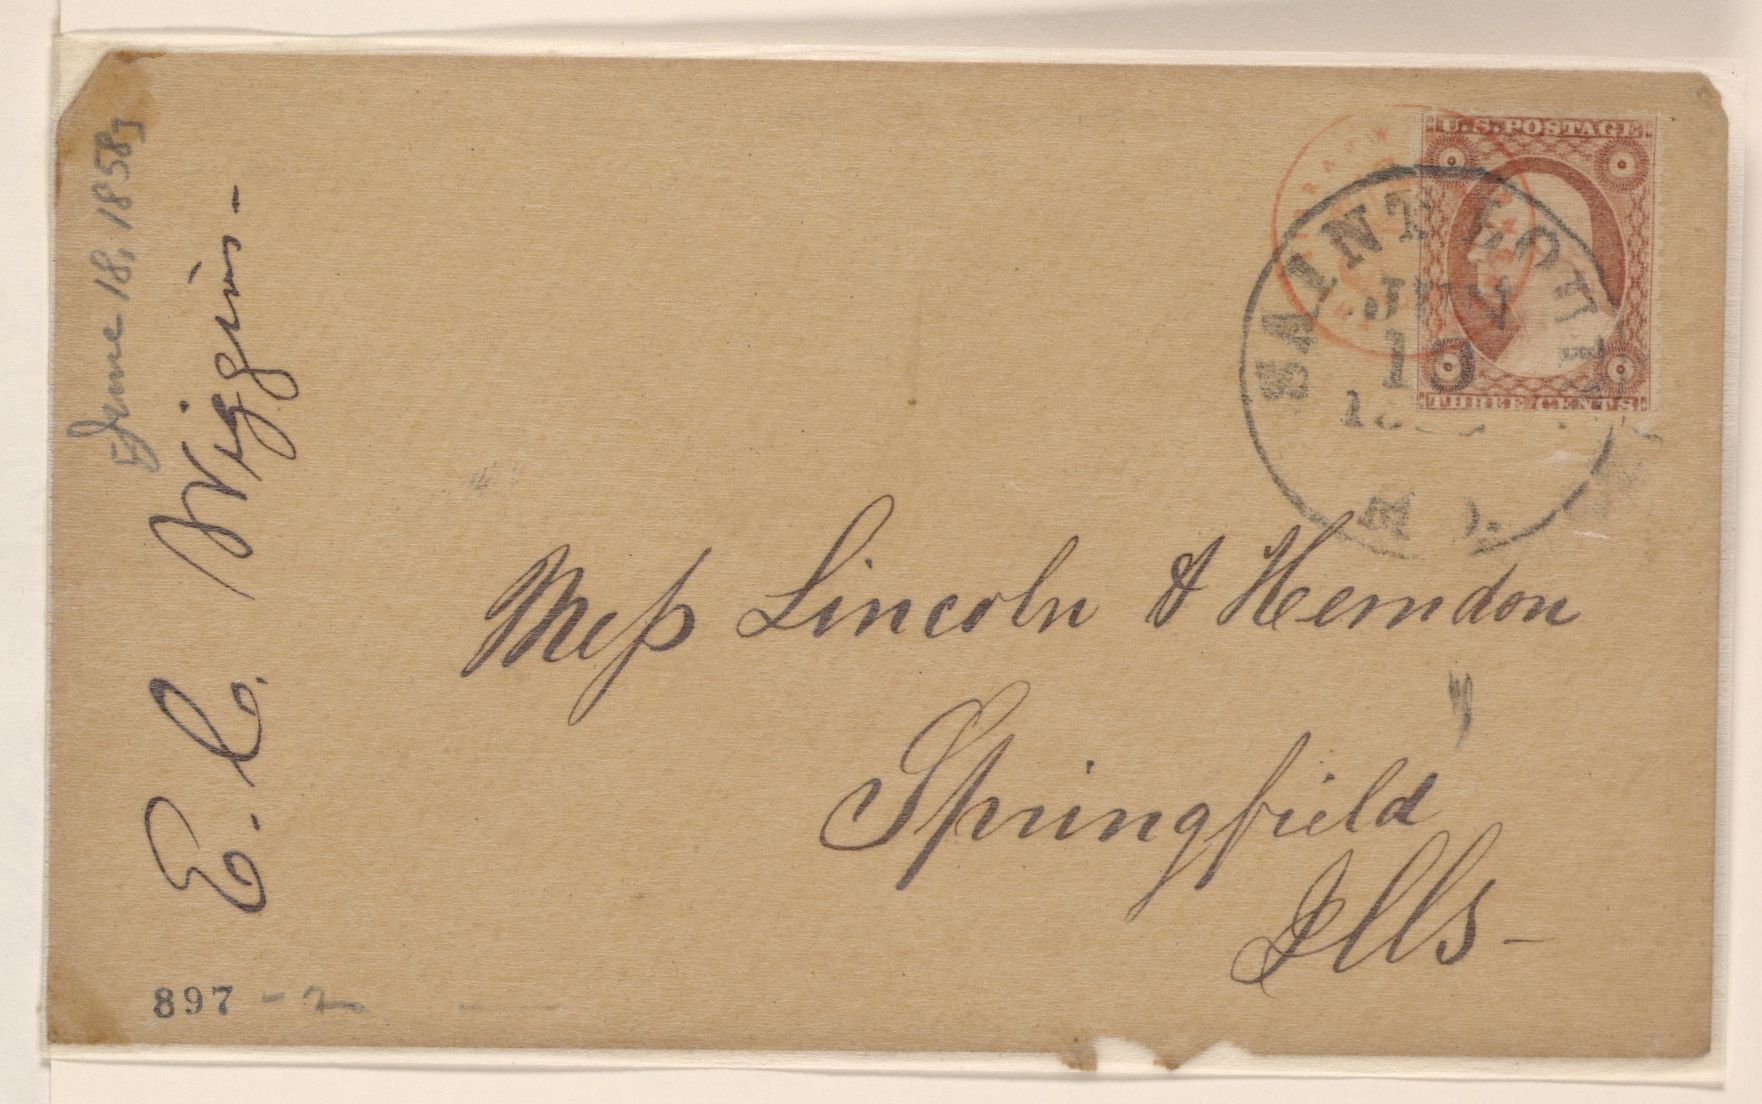 [June 18, 1858]
E. C. Wiggins -
U.S. POSTAGE
THREE CENTS
SAINT LOUIS
JUN
MO.
Mess Lincoln & Herndon
Springfield
Ills -
897 - 2